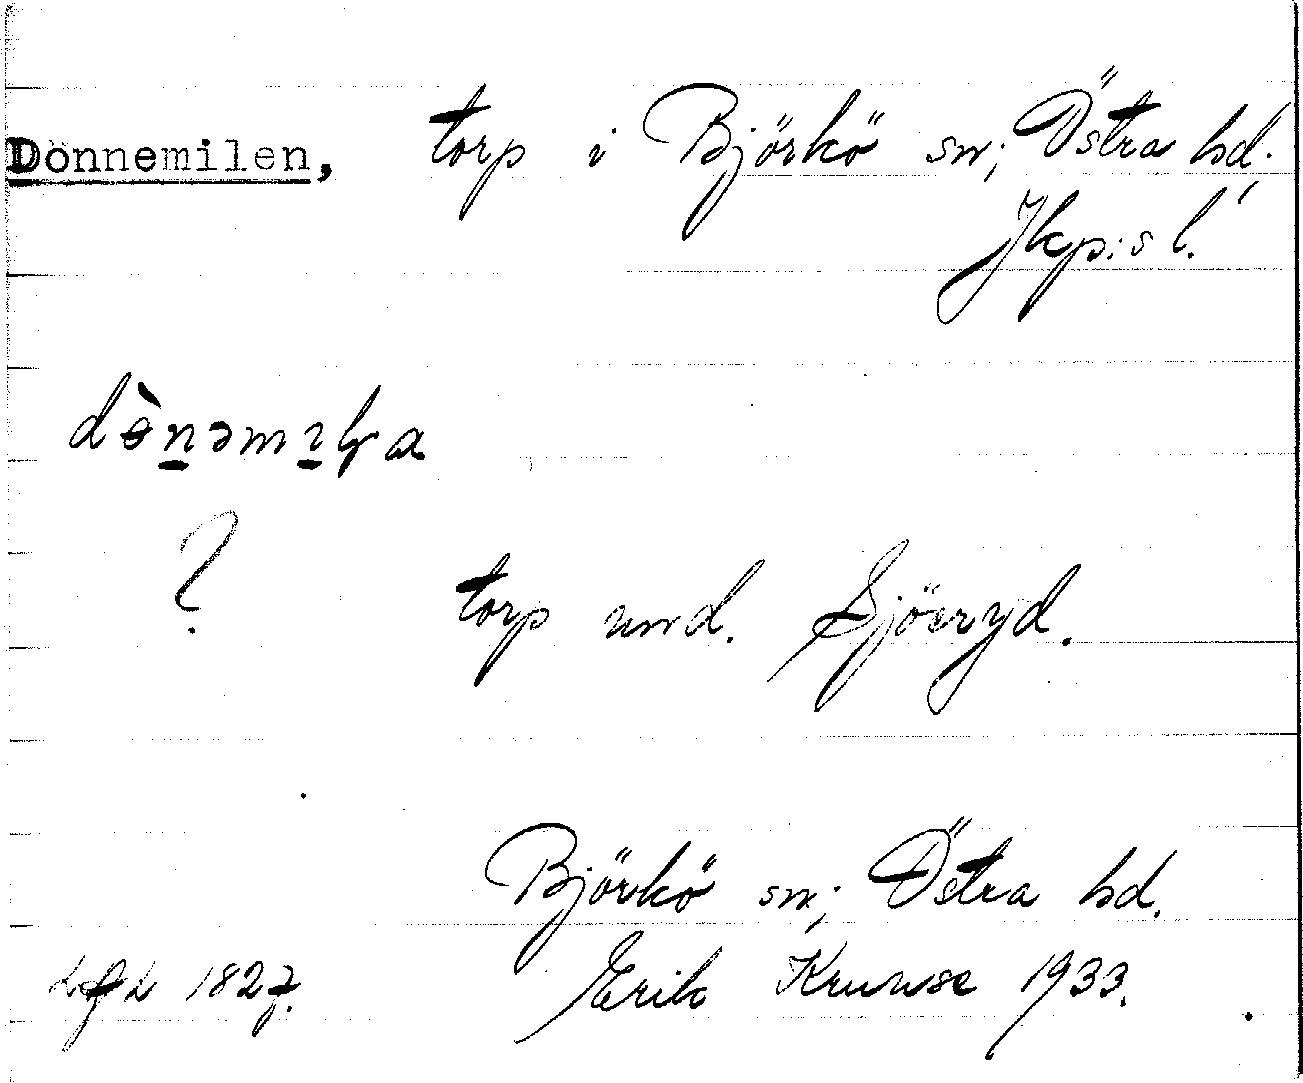 Dönnemilen, torp i Björkö sn; Östra hd.
Jkp:s l.
?
torp und. Sjöeryd.
Björkö sn; Östra hd.
1827. Erik Kruuse 1933.